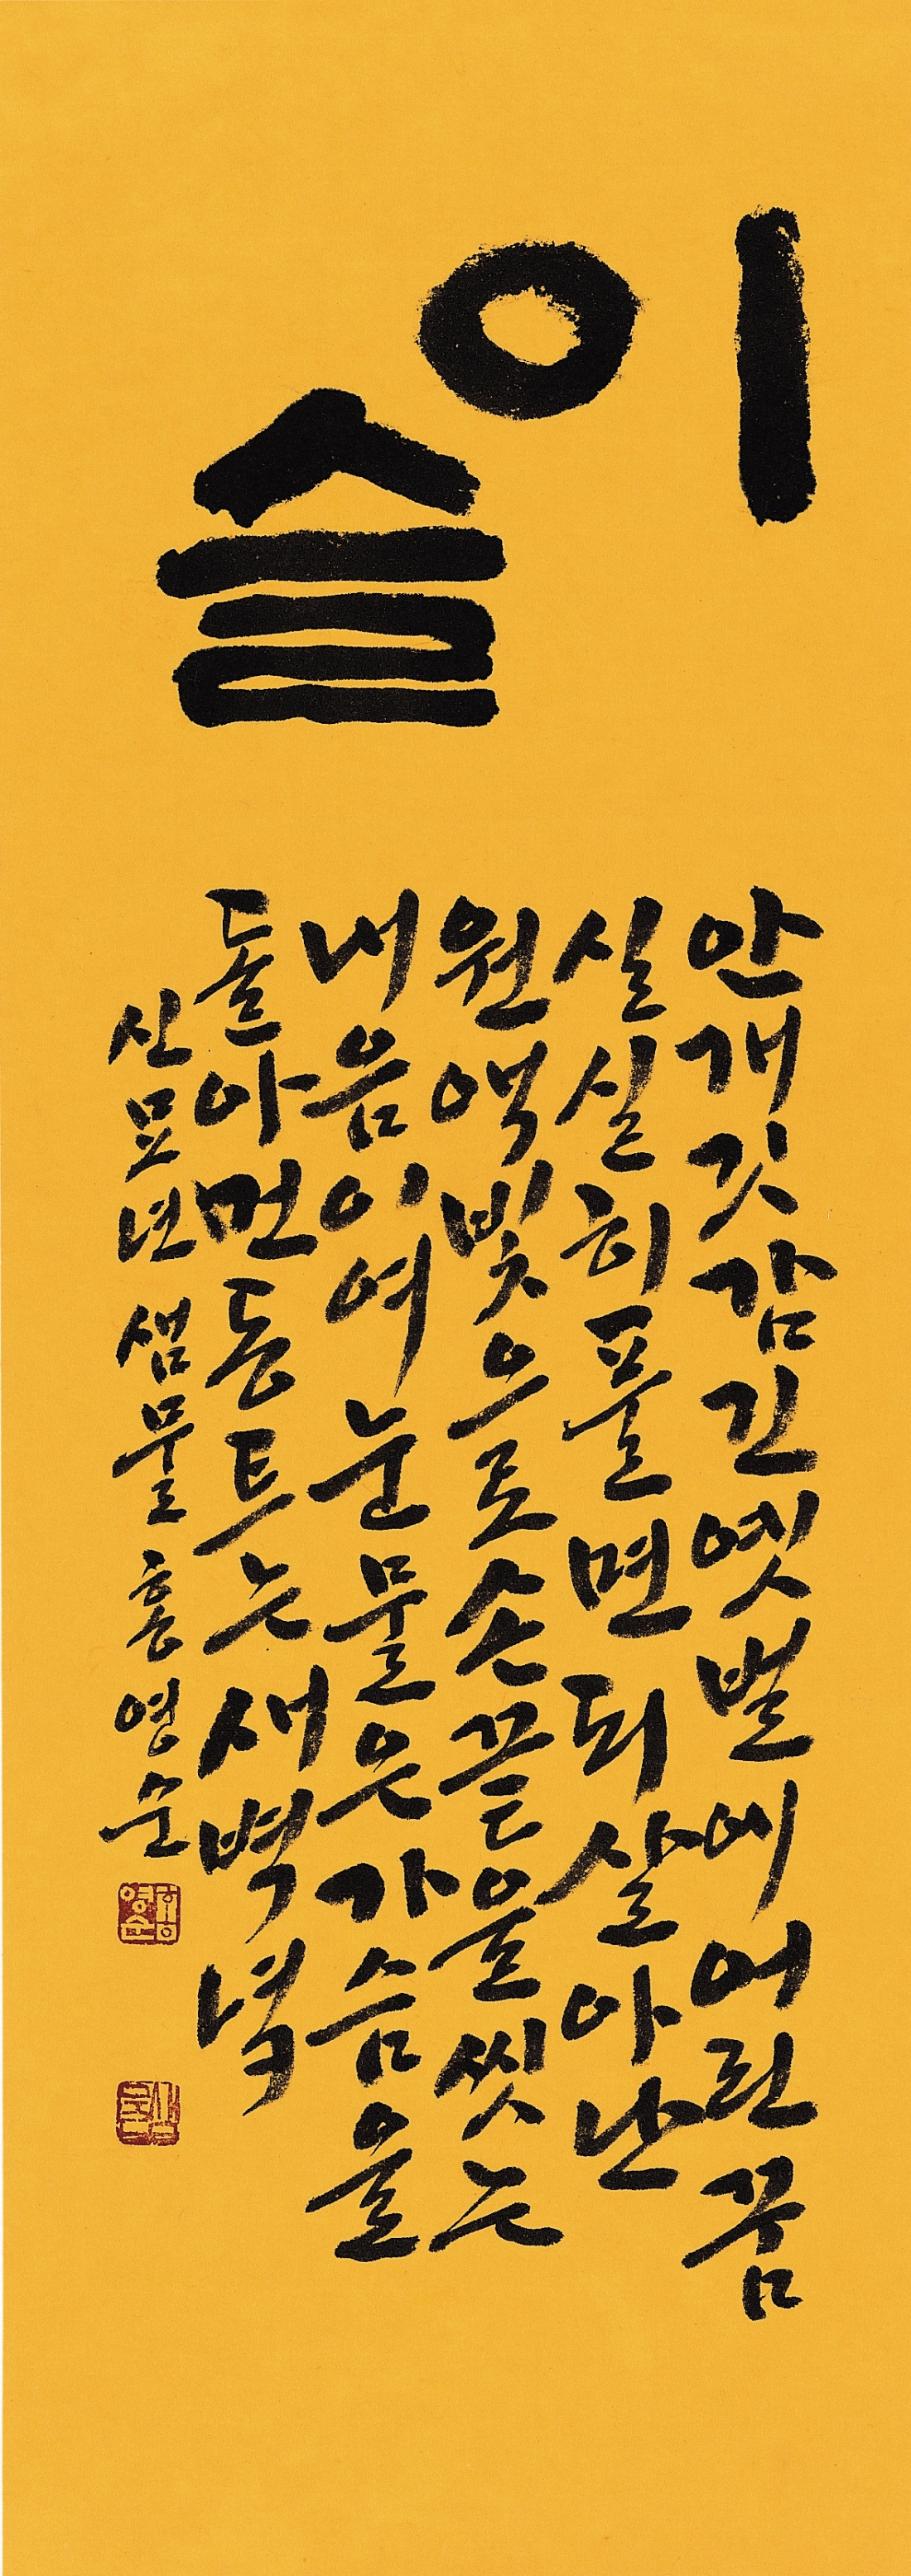 이슬
안개깃감긴옛벌에어린꿈
실실히풀면되살아난
원액빛으로손끝을씻는
내음이여눈물은가슴을
돌아먼동트는새벽녘
신묘년샘물홍영순
홍영순
샘물